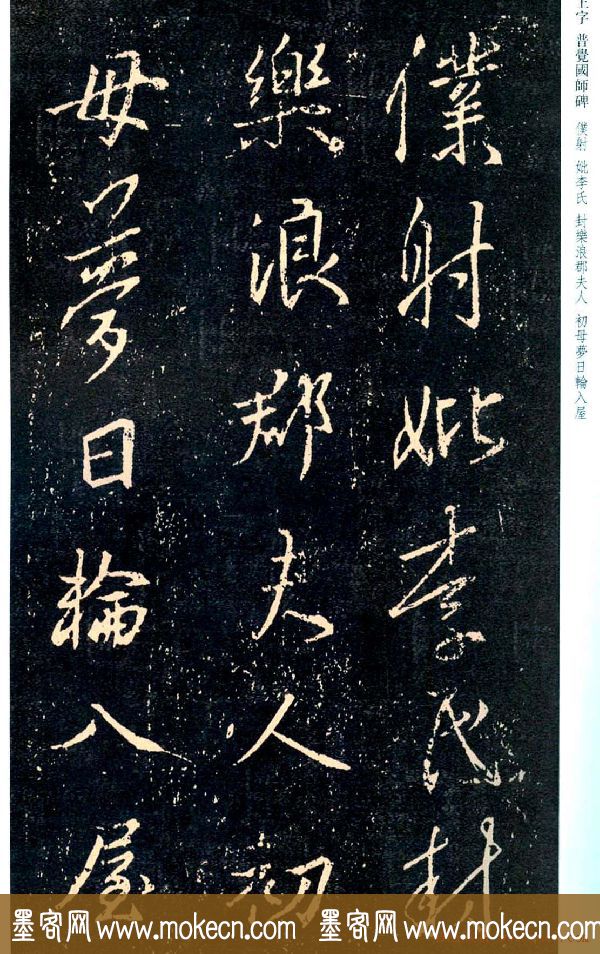 僕射妣李氏封
樂浪郡夫人初
母夢日輪入屋
王字 普覺國師碑 僕射 妣李氏 封樂浪郡夫人 初母夢日輪入屋
墨客网 www.mokecn.com 墨客网 www.mokecn.com